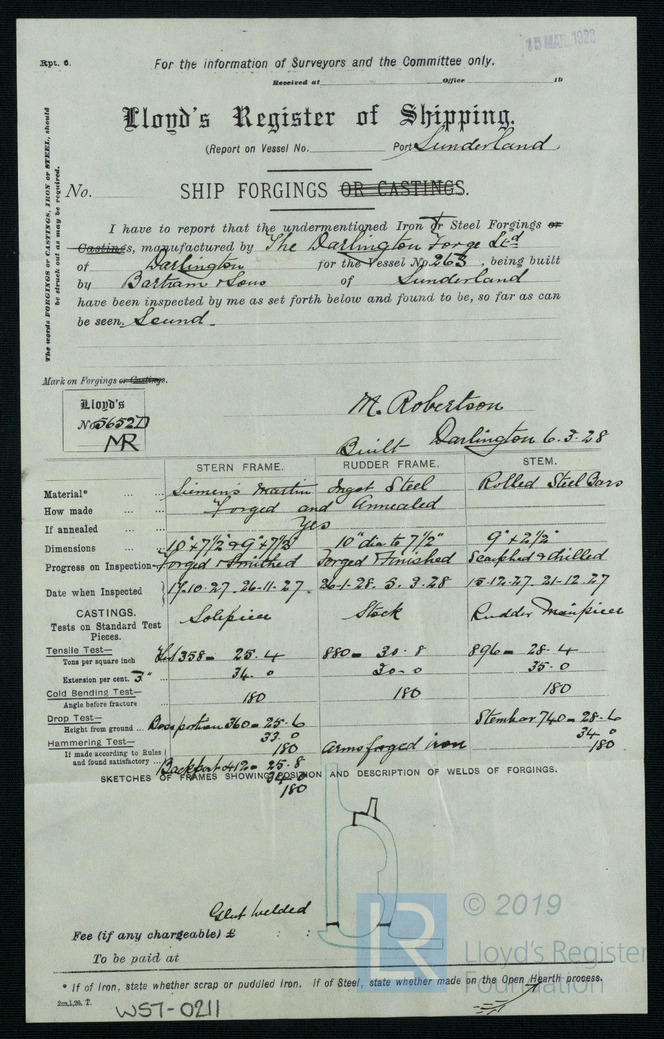 15 MAR 1928
Rpt. 6.
For the information of Surveyors and the Committee only.
Received at Office 19
Lloyd's Register of Shipping.
(Report on Vessel No. Port Sunderland
No. SHIP FORGINGS OR CASTINGS.
The words FORGINGS or CASTINGS, IRON or STEEL, should
be struck out as may be required.
I have to report that the undermentioned Iron or Steel Forgings or
Castings, manufactured by The Darlington Forge Ltd
of Darlington for the Vessel No 263, being built
by Bartram & Sons of Sunderland
have been inspected by me as set forth below and found to be, so far as can
be seen. Sound
Mark on Forgings or Castings.
Lloyd's
No 5652D
MR
M. Robertson
Built Darlington 6.3.28
STERN FRAME. RUDDER FRAME. STEM.
Material* ... ... Siemens Martin Ingot Steel Rolled Steel Bars
How made ... ... Forged and Annealed
If annealed ... ... Yes
Dimensions ... ... 10" x 7½" & 9" x 7½" 10" dia to 7½" 9" x 2½"
Progress on Inspection Forged & Smithed Forged & Finished Scarphed & drilled
Date when Inspected 17.10.27. 26.11.27. 26-1-28. 5.3.28 15-12.27. 21-12.27
CASTINGS.
Tests on Standard Test
Pieces.
Solepiece Stock Rudder Mainpiece
Tensile Test—
Tons per square inch
1358 = 25.4 880 = 30.8 896 = 28.4
Extension per cent. 3" ... 34.0 30.0 35.0
Cold Bending Test—
Angle before fracture
180 180 180
Drop Test—
Height from ground ...
Boss portion 360 = 25.6 Stembar 740 = 28.6
33.0 34.0
Hammering Test—
180 Arms forged iron 180
If made according to Rules
and found satisfactory ...
Backpost 412 = 25.8
34.0
180
SKETCHES OF FRAMES SHOWING POSITION AND DESCRIPTION OF WELDS OF FORGINGS.
Glut welded
Fee (if any chargeable) £ : :
To be paid at
* If of Iron, state whether scrap or puddled Iron. If of Steel, state whether made on the Open Hearth process.
2m.1,26. T.
WST-0211
LR
© 2019
Lloyd's Register
Foundation